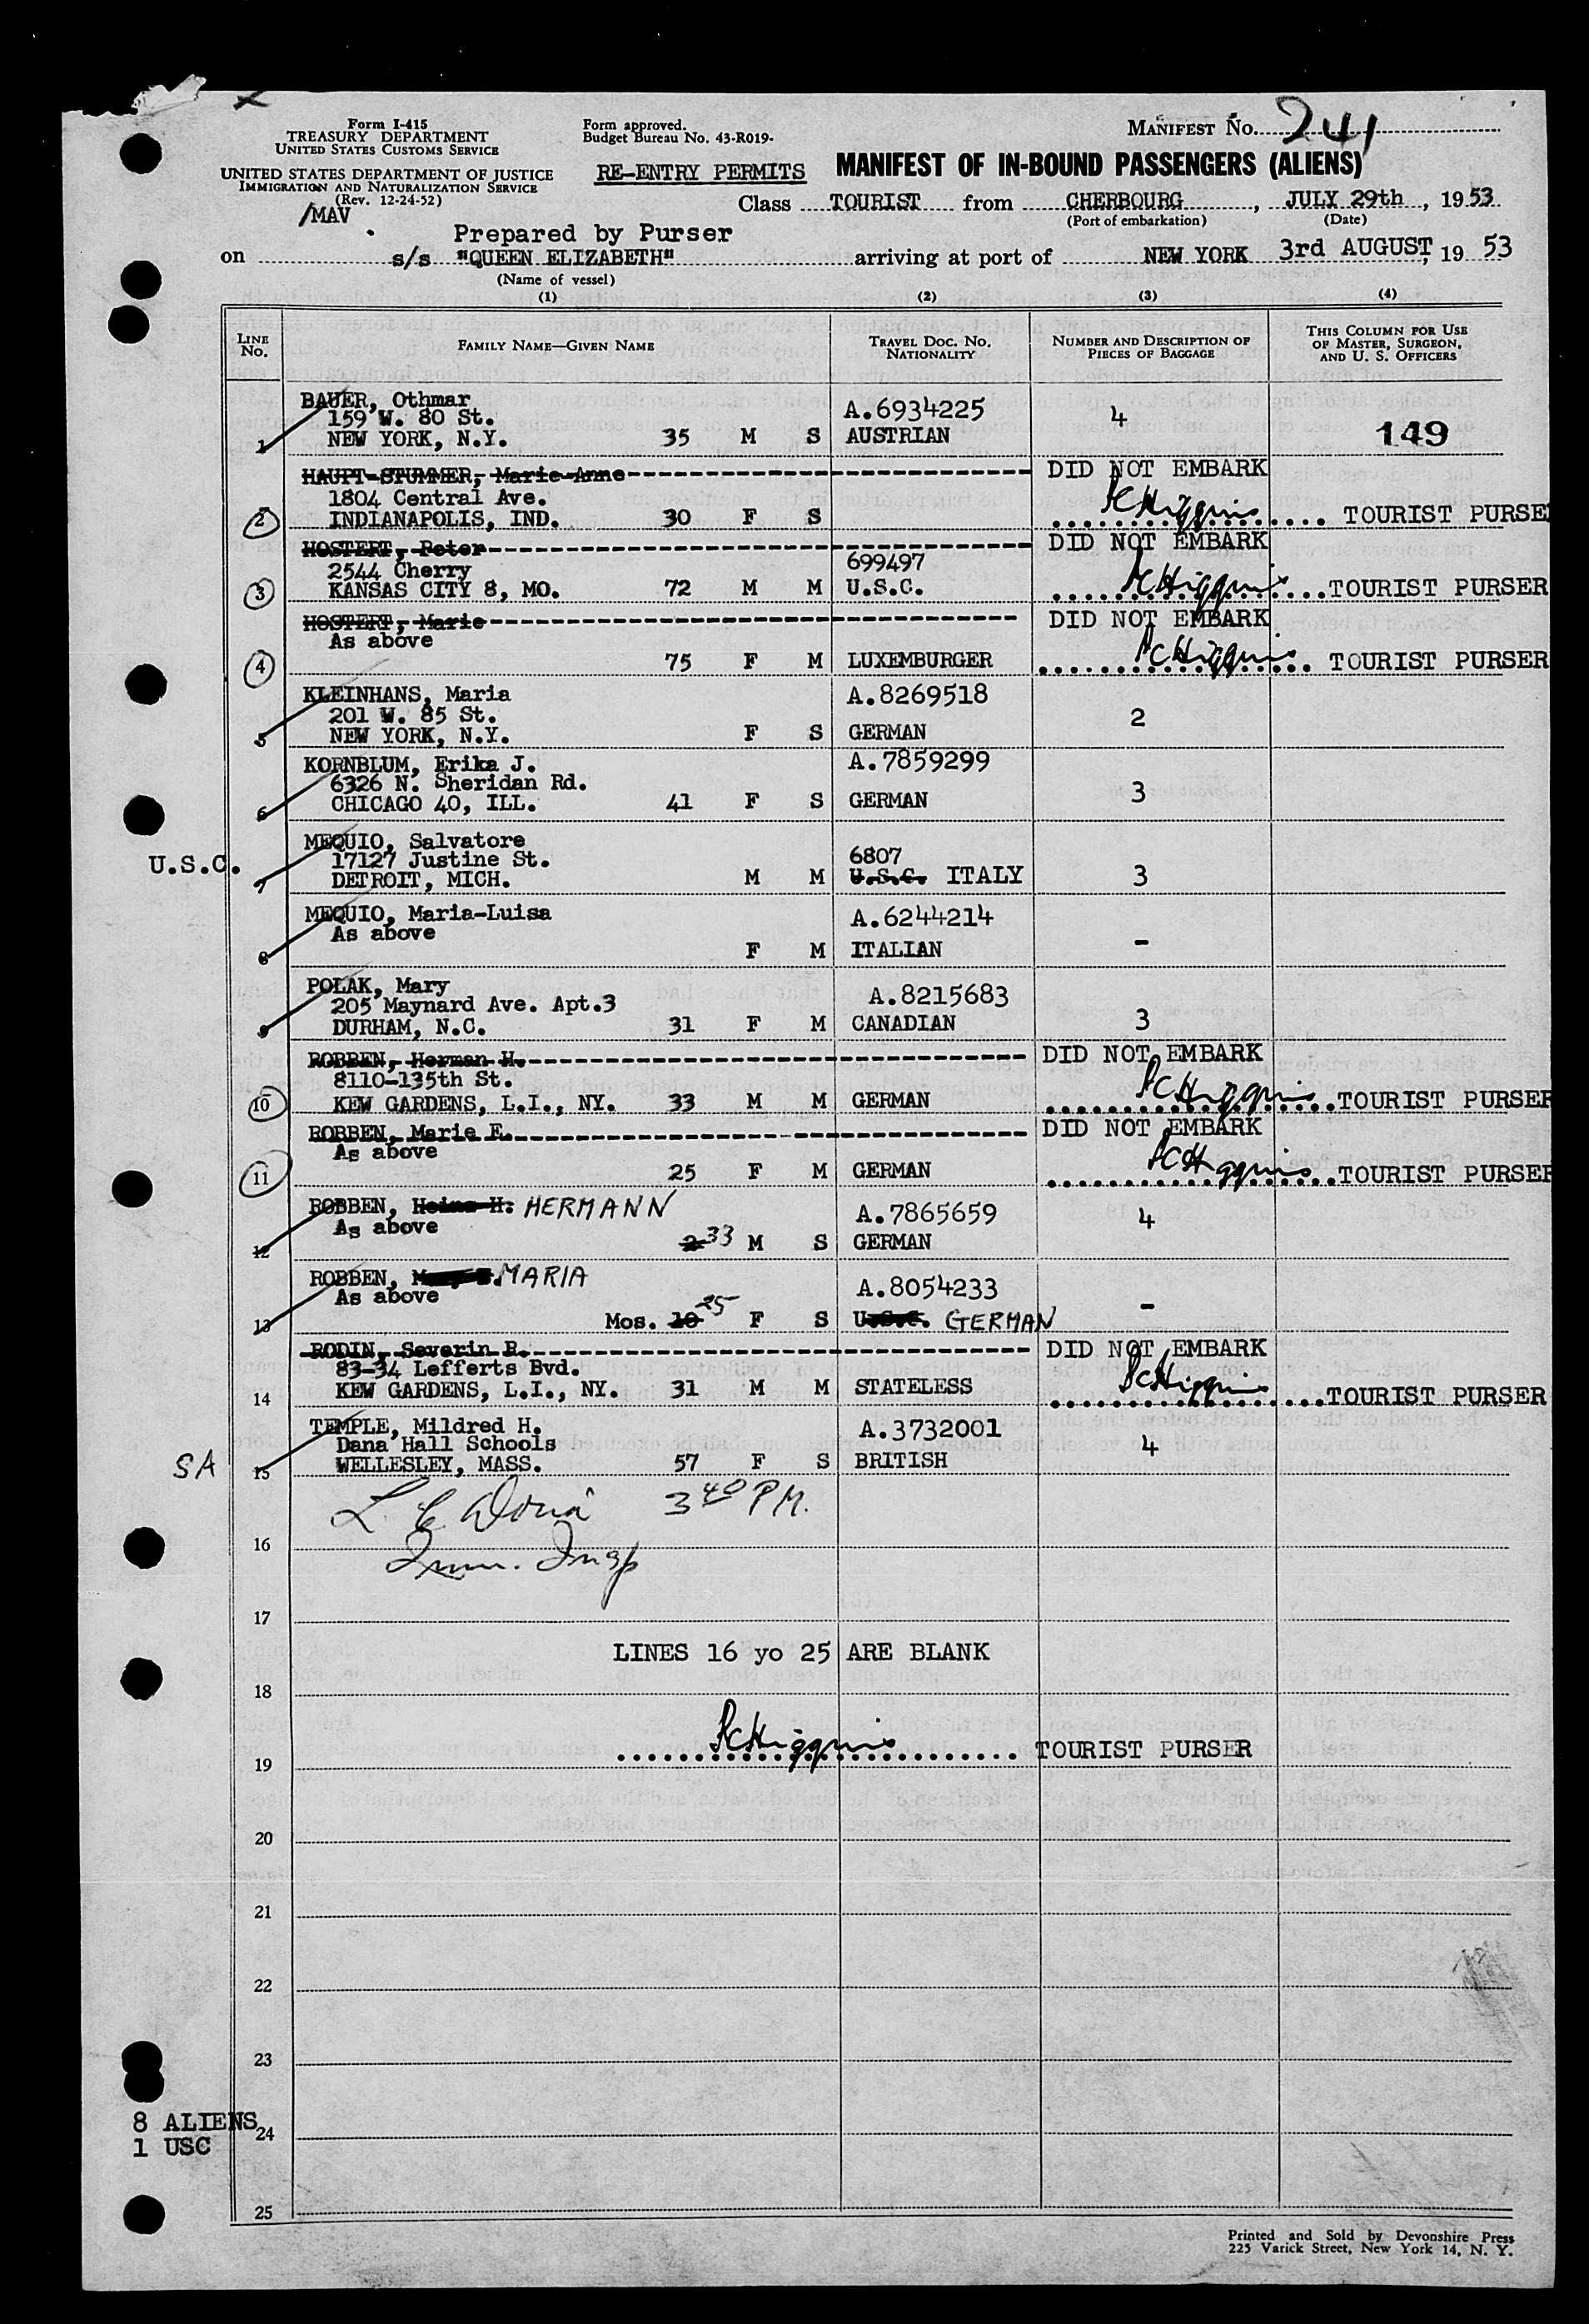 Form I-415
TREASURY DEPARTMENT
UNITED STATES CUSTOMS SERVICE
UNITED STATES DEPARTMENT OF JUSTICE
IMMIGRATION AND NATURALIZATION SERVICE
(Rev. 12-24-52)
/MAV
Form approved.
Budget Bureau No. 43-R019-
RE-ENTRY PERMITS
MANIFEST NO. 241
MANIFEST OF IN-BOUND PASSENGERS (ALIENS)
Class TOURIST from CHERBOURG, JULY 29th, 1953
(Port of embarkation) (Date)
Prepared by Purser
on s/s "QUEEN ELIZABETH" arriving at port of NEW YORK 3rd AUGUST, 19 53
(Name of vessel)
(1) (2) (3) (4)
LINE NO.
FAMILY NAME—GIVEN NAME
TRAVEL DOC. NO.
NATIONALITY
NUMBER AND DESCRIPTION OF
PIECES OF BAGGAGE
THIS COLUMN FOR USE
OF MASTER, SURGEON,
AND U. S. OFFICERS
BAUER, Othmar
159 W. 80 St. A.6934225 4
1 NEW YORK, N.Y. 35 M S AUSTRIAN 149
HAUPT-STUMMER, Marie-Anne DID NOT EMBARK
1804 Central Ave.
2 INDIANAPOLIS, IND. 30 F S TOURIST PURSER
HOSTERT, Peter DID NOT EMBARK
2544 Cherry 699497
3 KANSAS CITY 8, MO. 72 M M U.S.C. TOURIST PURSER
HOSTERT, Marie DID NOT EMBARK
As above
4 75 F M LUXEMBURGER TOURIST PURSER
KLEINHANS, Maria A.8269518
201 W. 85 St. 2
5 NEW YORK, N.Y. F S GERMAN
KORNBLUM, Erika J. A.7859299
6326 N. Sheridan Rd. 3
6 CHICAGO 40, ILL. 41 F S GERMAN
MEQUIO, Salvatore
17127 Justine St. 6807
U.S.C. 7 DETROIT, MICH. M M U.S.C. ITALY 3
MEQUIO, Maria-Luisa A.6244214
As above
8 F M ITALIAN -
POLAK, Mary
205 Maynard Ave. Apt.3 A.8215683
9 DURHAM, N.C. 31 F M CANADIAN 3
ROBBEN, Herman H. DID NOT EMBARK
8110-135th St.
10 KEW GARDENS, L.I., NY. 33 M M GERMAN TOURIST PURSER
ROBBEN, Marie E. DID NOT EMBARK
As above
11 25 F M GERMAN TOURIST PURSER
ROBBEN, Heinz H. HERMANN A.7865659 4
As above
12 2 33 M S GERMAN
ROBBEN, MARIA A.8054233
As above
13 Mos. 10 25 F S U.S.C. GERMAN -
RODIN, Severin R. DID NOT EMBARK
83-34 Lefferts Bvd.
14 KEW GARDENS, L.I., NY. 31 M M STATELESS TOURIST PURSER
TEMPLE, Mildred H. A.3732001
Dana Hall Schools 4
SA 15 WELLESLEY, MASS. 57 F S BRITISH
3 40 P.M.
16 Imm. Insp
17
LINES 16 yo 25 ARE BLANK
18
19 TOURIST PURSER
20
21
22
23
8 ALIENS 24
1 USC
25
Printed and Sold by Devonshire Press
225 Varick Street, New York 14, N. Y.